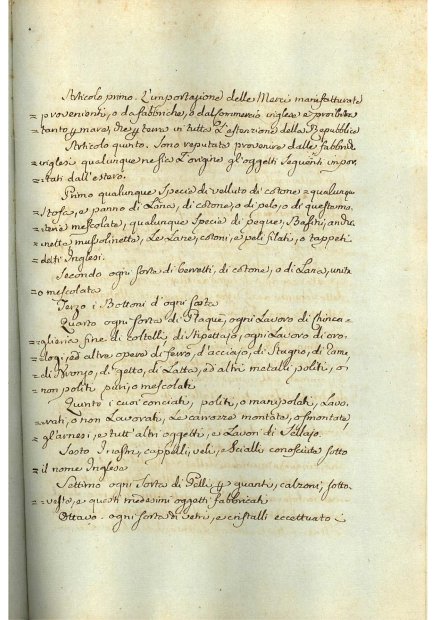 Articolo primo. L'importazione delle Merci manifatturate
= provenienti, o da fabbriche, o dal Commercio inglese è proibita
= tanto y mare, che y terra in tutta L'estenzione della Repubblica
Articolo quinto. Sono reputati provenire dalle fabbriche
= inglesi qualunque ne sia L'origine gl'oggetti Seguenti impor
= tati dall'estero.
Primo qualunque Specie di velluto di cotone = qualunque
= Stoffa, e panno di Lana, di cotone, o di pelo, o di queste ma
terie mescolate, qualunque Specie di peque, Basini,
mussolinette, Le Lane, cotoni, e peli filati, o tappeti
detti Inglesi.
Secondo ogni sorta di berretti, di cotone, o di Lana, unite
= o mescolata
Terzo i Bottoni d'ogni sorta
Quarto ogni sorta di Plaque, ogni Lavoro di chinca-
= glieria fine di coltelli, di Stipettajo, ogni Lavoro di oro
= logi, ed altre opere di ferro, d'acciajo, di Stagno, di rame,
= di Bronzo, di getto, di Latta, ed altri metalli politi, o
= non politi puri, o mescolati
Quinto i cuoi conciati, politi, o manipolati, Lavo
= rati, o non Lavorati, Le carrozze montate, o smontate,
gl'arnesi, e tutt'altri oggetti, e Lavori di Sellajo.
Sesto I nastri, cappelli, veli, e Scialli conosciute sotto
= il nome Inglese
Settimo ogni Sorta di Pelli y guanti, calzoni, sotto-
= veste, e questi medesimi oggetti fabbricati
Ottavo. ogni sorta di vetri, e cristalli eccettuato i